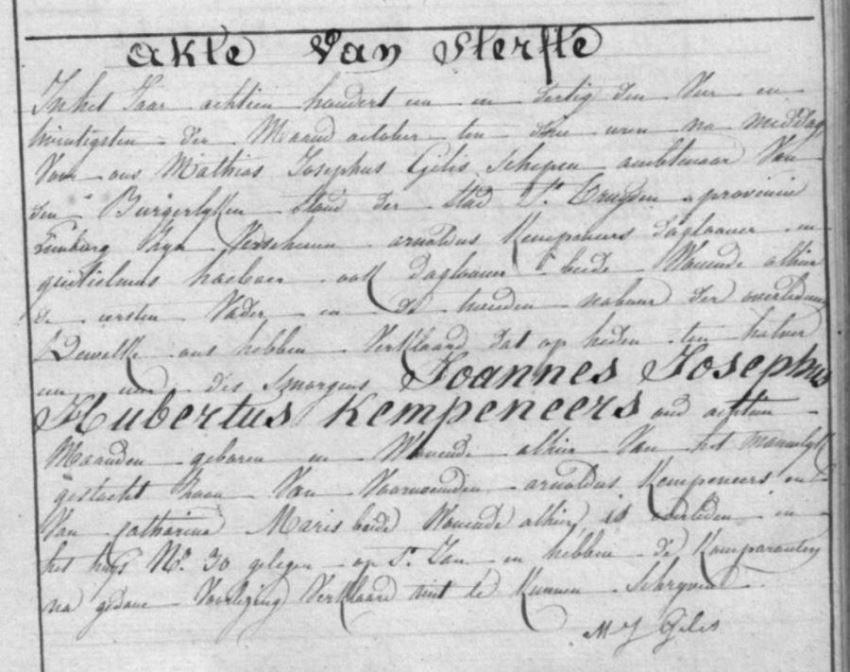 akte Van Sterfte
In het Jaar achtien hondert en dertig den Vier en
twintigsten der Maand october ten drie uren na middag
Voor ons Mathias Josephus Gilis Schepen ambtenaar Van
den Burgerlyken Stand der Stad St Truyden provincie
Limburg Zyn Verschenen arnoldus Kempeneers daglooner en
guilielmus ook daglooner beide Wonende alhier
de eersten Vader en de tweeden nabuur der overledene
Dewelke ons hebben Verklaard dat op heden ten halver
een uren des smorgens Joannes Josephus
Hubertus Kempeneers oud achtien
Maanden geboren en Wonende alhier Van het mannelyk
geslacht Zoon Van Voornoemden arnoldus Kempeneers en
Van catharina Maris beide Wonende alhier is overleden in
het huys No. 30 gelegen op St Jan en hebben de Komparanten
na gedane Voorlezing Verklaard niet te Kunnen Schryven
M J Gilis